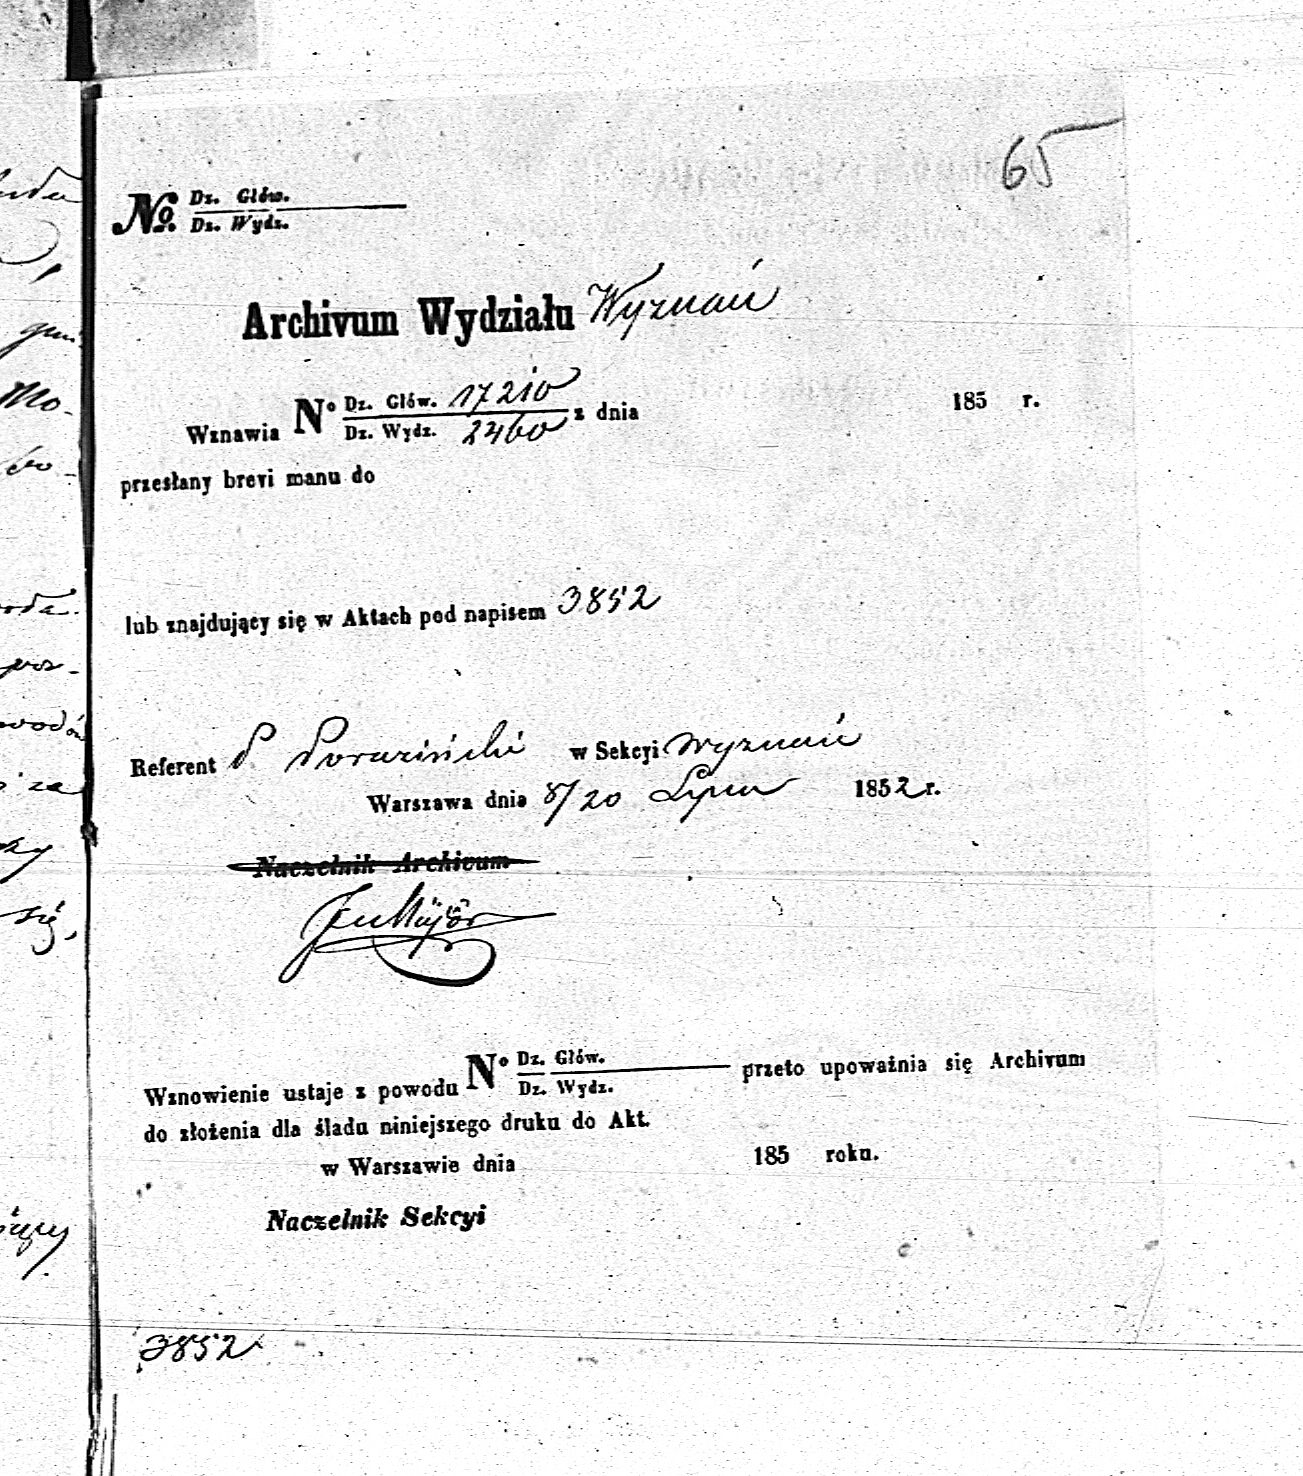 65
№ Dz. Głów.
Dz. Wydz.
Archivum Wydziału Wyznań
Wznawia N° Dz. Głów. 17210
Dz. Wydz. 2460 z dnia 185 r.
przesłany brevi manu do
lub znajdujący się w Aktach pod napisem 3852
Referent P. Poraziński w Sekcyi Wyznań
Warszawa dnia 8/20 Lipca 1852 r.
Naczelnik Archivum
Wznowienie ustaje z powodu N° Dz. Głów.
Dz. Wydz. przeto upoważnia się Archivum
do złożenia dla śladu niniejszego druku do Akt.
w Warszawie dnia 185 roku.
Naczelnik Sekcyi
3852
gmi
Mo-
bo-
por-
wodów
za
się,